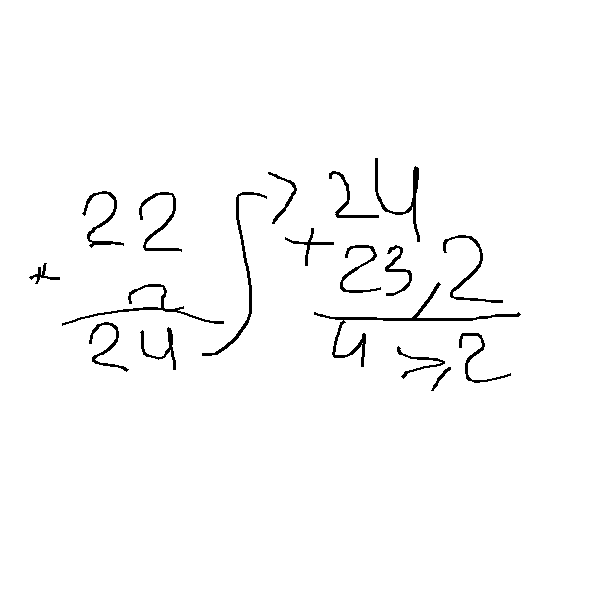 22
+ 2
24
24
+ 23,2
47,2